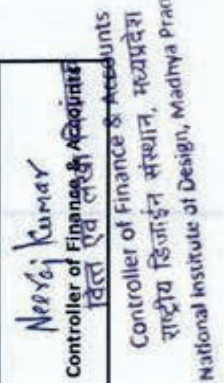 Neeraj Kumar
Controller of Finance & Accounts
वित्त एवं लेखा नियंत्रक
Controller of Finance & Accounts
राष्ट्रीय डिजाईन संस्थान, मध्यप्रदेश
National Institute of Design, Madhya Prad